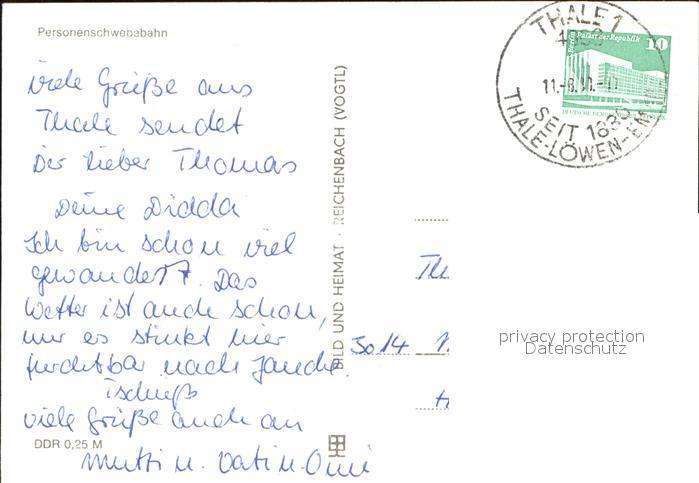 Personenschwebebahn
Viele Grüße aus
Thale sendet
Dir lieber Thomas
Deine Didda
Ich bin schon viel
gewandert. Das
Wetter ist auch schon,
nur es stinkt hier
furchtbar nach Jauche.
Tschüß
viele Grüße auch an
Mutti u. Vati u. Omi
DDR 0,25 M
BILD UND HEIMAT · REICHENBACH (VOGTL)
THALE 1
11.-8.90.-
SEIT 1830
THALE-LÖWEN-EM
Palast der Republik
10
Th
3014
privacy protection
Datenschutz